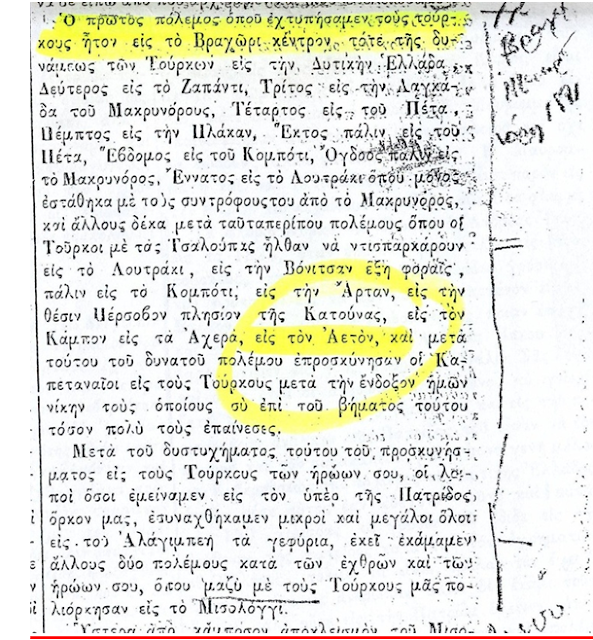 Ὁ πρῶτος πόλεμος ὁποῦ ἐχτυπήσαμεν τοὺς τούρ-
κους ἦτον εἰς τὸ Βραχῶρι κέντρον τότε τῆς δυ-
νάμεως τῶν Τούρκων εἰς τὴν Δυτικὴν Ἑλλάδα
Δεύτερος εἰς τὸ Ζαπάντι, Τρίτος εἰς τὴν Λαγκά-
δα τοῦ Μακρυνόρους, Τέταρτος εἰς τοῦ Πέτα,
Πέμπτος εἰς τὴν Πλάκαν, Ἕκτος πάλιν εἰς τοῦ
Πέτα, Ἕβδομος εἰς τοῦ Κομπότι, Ὄγδοος πάλιν εἰς
τὸ Μακρυνόρος, Ἔννατος εἰς τὸ Λουτράκι ὁποῦ μόνος
ἐστάθηκα μὲ τοὺς συντρόφους του ἀπὸ τὸ Μακρυνόρος,
καὶ ἄλλους δέκα μετὰ ταῦτα περίπου πολέμους ὁποῦ οἱ
Τοῦρκοι μὲ τὰς Τσαλούπας ἦλθαν νὰ ντισπαρκάρουν
εἰς τὸ Λουτράκι, εἰς τὴν Βόνιτσαν ἕξη φοραῖς,
πάλιν εἰς τὸ Κομπότι, εἰς τὴν Ἄρταν, εἰς τὴν
θέσιν Πέρσοβον πλησίον τῆς Κατούνας, εἰς τὸν
Κάμπον εἰς τὰ Ἀχερά, εἰς τὸν Ἀετὸν, καὶ μετὰ
τούτου τοῦ δυνατοῦ πολέμου ἐπροσκύνησαν οἱ Κα-
πεταναῖοι εἰς τοὺς Τούρκους μετὰ τὴν ἔνδοξον ἡμῶν
νίκην τοὺς ὁποίους σὺ ἐπὶ τοῦ βήματος τούτου
τόσον πολὺ τοὺς ἐπαίνεσες.
Μετὰ τοῦ δυστυχήματος τούτου τοῦ προσκυνήσ-
ματος εἰς τοὺς Τούρκους τῶν ἡρώων σου, οἱ λοι-
ποὶ ὅσοι ἐμείναμεν εἰς τὸν ὑπὲρ τῆς Πατρίδος
ὅρκον μας, ἐσυναχθήκαμεν μικροὶ καὶ μεγάλοι ὅλοι
εἰς τοῦ Ἀλάγιμπεη τὰ γεφύρια, ἐκεῖ ἐκάμαμεν
ἄλλους δύο πολέμους κατὰ τῶν ἐχθρῶν καὶ τῶν
ἡρώων σου, ὅπου μαζὺ μὲ τοὺς Τούρκους μᾶς πο-
λιόρκησαν εἰς τὸ Μισολόγγι.